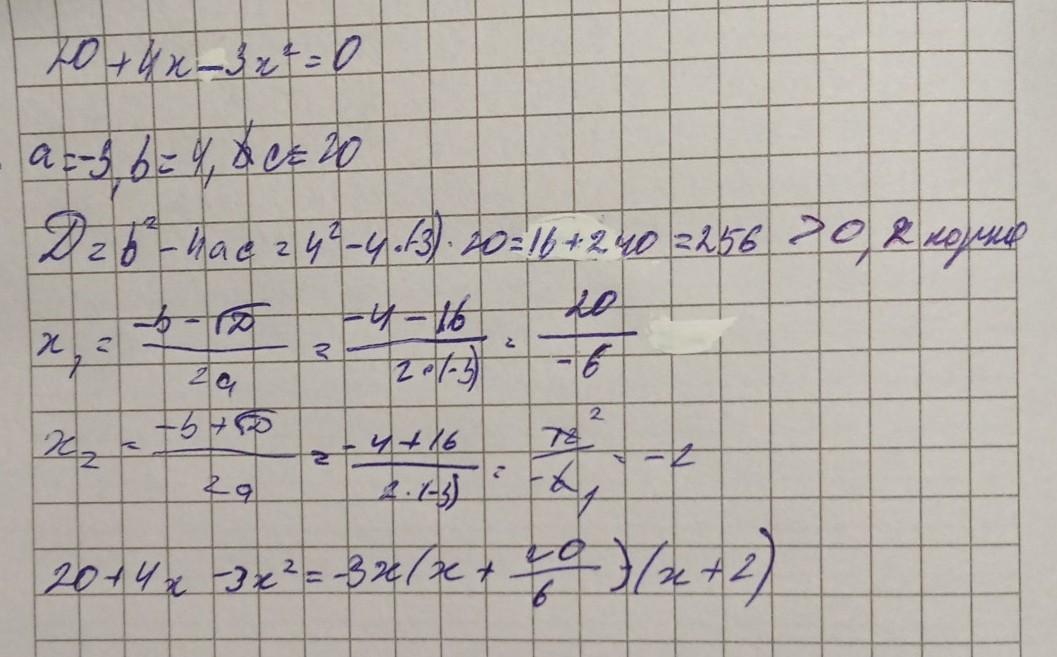 20 + 4x - 3x² = 0
a = -3, b = 4, c = 20
D = b² - 4ac = 4² - 4·(-3)·20 = 16 + 240 = 256 > 0, 2 корня
x₁ = (-b - √D)/(2a) = (-4 - 16)/(2·(-3)) = 20/(-6)
x₂ = (-b + √D)/(2a) = (-4 + 16)/(2·(-3)) = 12²/(-6₁) = -2
20 + 4x - 3x² = -3x(x + 20/6)(x + 2)